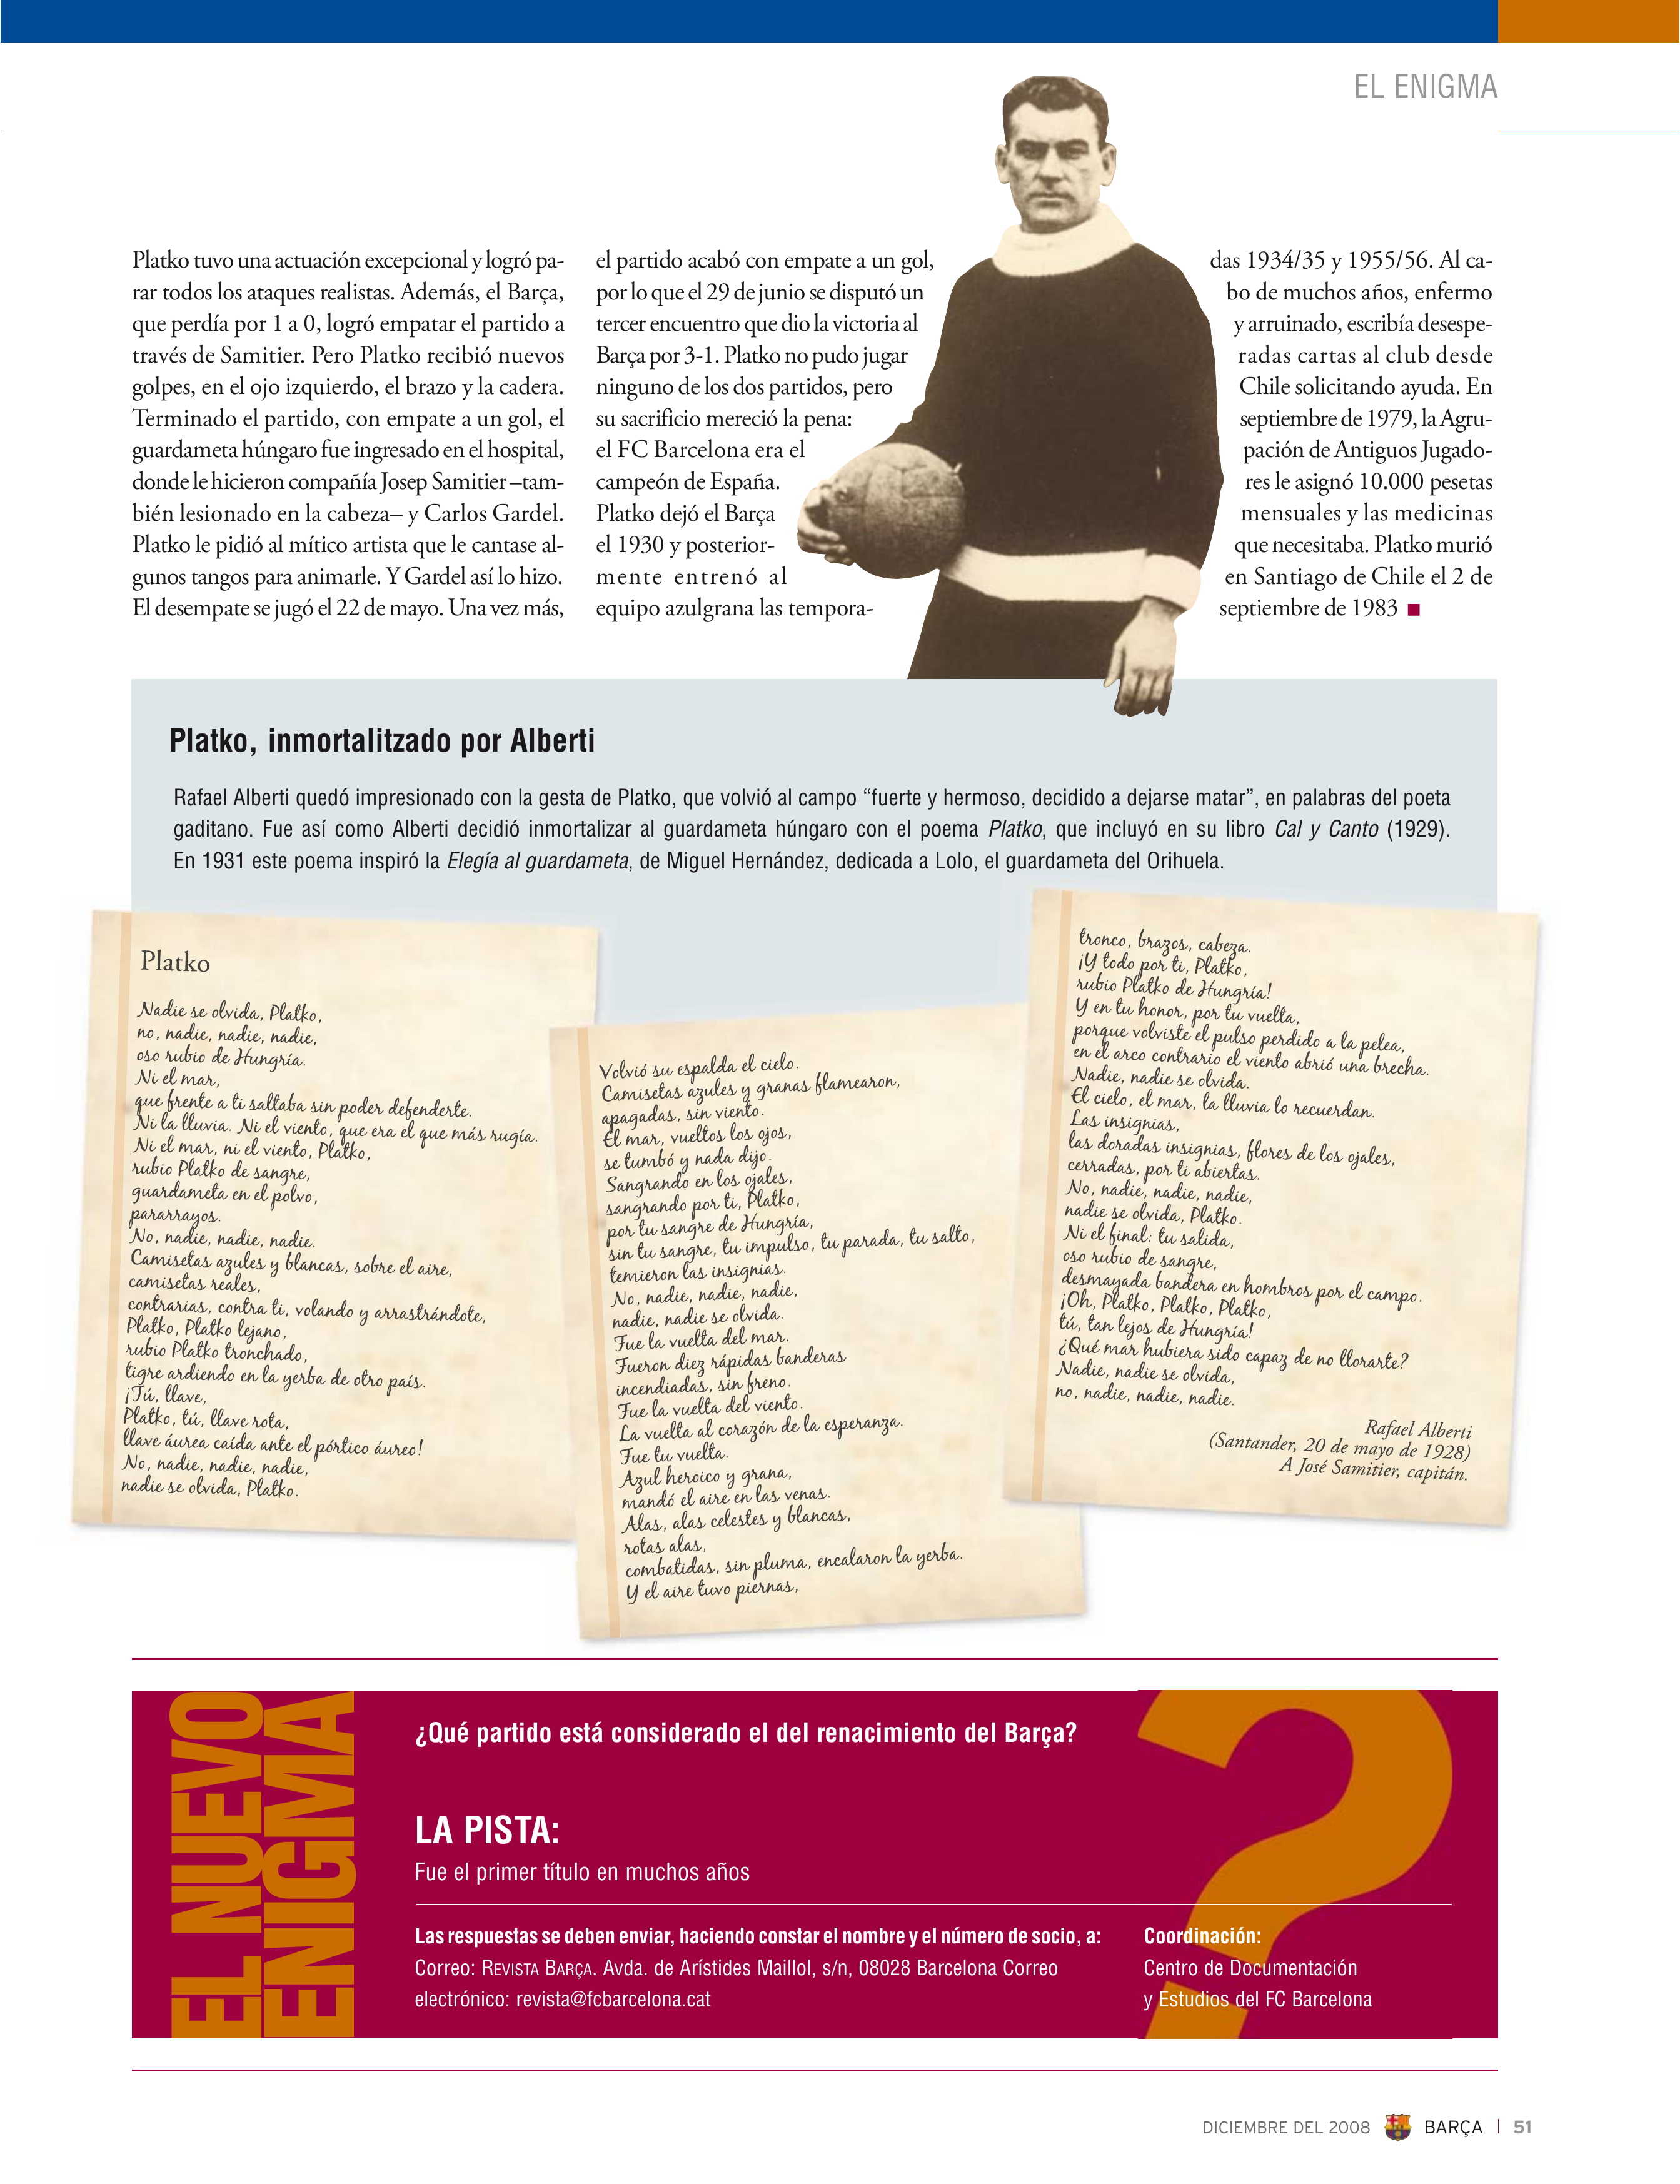 EL ENIGMA
Platko tuvo una actuación excepcional y logró pa-
rar todos los ataques realistas. Además, el Barça,
que perdía por 1 a 0, logró empatar el partido a
través de Samitier. Pero Platko recibió nuevos
golpes, en el ojo izquierdo, el brazo y la cadera.
Terminado el partido, con empate a un gol, el
guardameta húngaro fue ingresado en el hospital,
donde le hicieron compañía Josep Samitier –tam-
bién lesionado en la cabeza– y Carlos Gardel.
Platko le pidió al mítico artista que le cantase al-
gunos tangos para animarle. Y Gardel así lo hizo.
El desempate se jugó el 22 de mayo. Una vez más,
el partido acabó con empate a un gol,
por lo que el 29 de junio se disputó un
tercer encuentro que dio la victoria al
Barça por 3-1. Platko no pudo jugar
ninguno de los dos partidos, pero
su sacrificio mereció la pena:
el FC Barcelona era el
campeón de España.
Platko dejó el Barça
el 1930 y posterior-
mente entrenó al
equipo azulgrana las tempora-
das 1934/35 y 1955/56. Al ca-
bo de muchos años, enfermo
y arruinado, escribía desespe-
radas cartas al club desde
Chile solicitando ayuda. En
septiembre de 1979, la Agru-
pación de Antiguos Jugado-
res le asignó 10.000 pesetas
mensuales y las medicinas
que necesitaba. Platko murió
en Santiago de Chile el 2 de
septiembre de 1983
Platko, inmortalitzado por Alberti
Rafael Alberti quedó impresionado con la gesta de Platko, que volvió al campo “fuerte y hermoso, decidido a dejarse matar”, en palabras del poeta
gaditano. Fue así como Alberti decidió inmortalizar al guardameta húngaro con el poema Platko, que incluyó en su libro Cal y Canto (1929).
En 1931 este poema inspiró la Elegía al guardameta, de Miguel Hernández, dedicada a Lolo, el guardameta del Orihuela.
Platko
Nadie se olvida, Platko,
no, nadie, nadie, nadie,
oso rubio de Hungría.
Ni el mar,
que frente a ti saltaba sin poder defenderte.
Ni la lluvia. Ni el viento, que era el que más rugía.
Ni el mar, ni el viento, Platko,
rubio Platko de sangre,
guardameta en el polvo,
pararrayos.
No, nadie, nadie, nadie.
Camisetas azules y blancas, sobre el aire,
camisetas reales,
contrarias, contra ti, volando y arrastrándote,
Platko, Platko lejano,
rubio Platko tronchado,
tigre ardiendo en la yerba de otro país.
¡Tú, llave,
Platko, tú, llave rota,
llave áurea caída ante el pórtico áureo!
No, nadie, nadie, nadie,
nadie se olvida, Platko.
Volvió su espalda el cielo.
Camisetas azules y granas flamearon,
apagadas, sin viento.
El mar, vueltos los ojos,
se tumbó y nada dijo.
Sangrando en los ojales,
sangrando por ti, Platko,
por tu sangre de Hungría,
sin tu sangre, tu impulso, tu parada, tu salto,
temieron las insignias.
No, nadie, nadie, nadie,
nadie, nadie se olvida.
Fue la vuelta del mar.
Fueron diez rápidas banderas
incendiadas, sin freno.
Fue la vuelta del viento.
La vuelta al corazón de la esperanza.
Fue tu vuelta.
Azul heroico y grana,
mandó el aire en las venas.
Alas, alas celestes y blancas,
rotas alas,
combatidas, sin pluma, encalaron la yerba.
Y el aire tuvo piernas,
tronco, brazos, cabeza.
¡Y todo por ti, Platko,
rubio Platko de Hungría!
Y en tu honor, por tu vuelta,
porque volviste el pulso perdido a la pelea,
en el arco contrario el viento abrió una brecha.
Nadie, nadie se olvida.
El cielo, el mar, la lluvia lo recuerdan.
Las insignias,
las doradas insignias, flores de los ojales,
cerradas, por ti abiertas.
No, nadie, nadie, nadie,
nadie se olvida, Platko.
Ni el final: tu salida,
oso rubio de sangre,
desmayada bandera en hombros por el campo.
¡Oh, Platko, Platko, Platko,
tú, tan lejos de Hungría!
¿Qué mar hubiera sido capaz de no llorarte?
Nadie, nadie se olvida,
no, nadie, nadie, nadie.
Rafael Alberti
(Santander, 20 de mayo de 1928)
A José Samitier, capitán.
EL NUEVO
ENIGMA
¿Qué partido está considerado el del renacimiento del Barça?
LA PISTA:
Fue el primer título en muchos años
Las respuestas se deben enviar, haciendo constar el nombre y el número de socio, a:
Correo: REVISTA BARÇA. Avda. de Arístides Maillol, s/n, 08028 Barcelona Correo
electrónico: revista@fcbarcelona.cat
Coordinación:
Centro de Documentación
y Estudios del FC Barcelona
DICIEMBRE DEL 2008 BARÇA 51